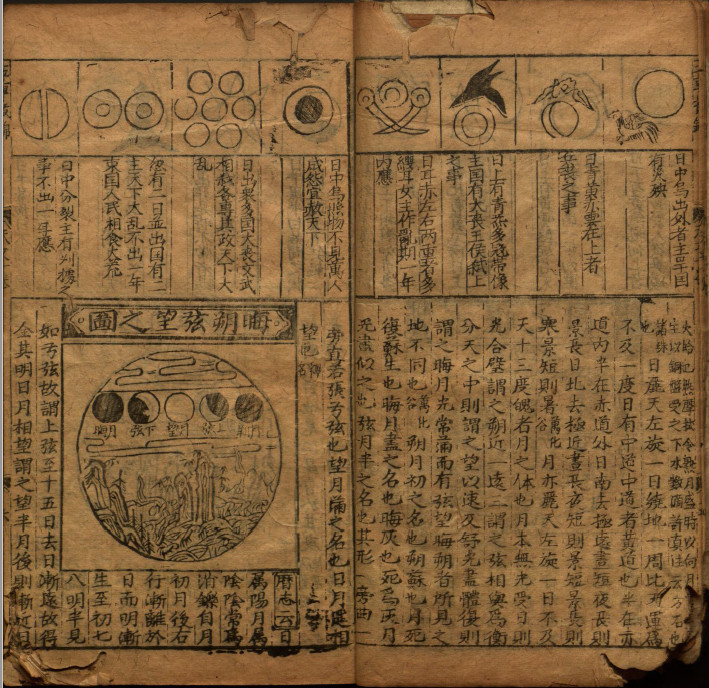 日中烏出外者主旱国
有災殃
日青黃赤雲在上者
兵喪之事
日上有青黃多冠帶像
主国有大喪王侯弒上
之事
日耳赤左右兩重者多
纓耳女主作亂期一年
内應
日麗天左旋一日繞地一周比天運為
不及一度日有中道中道者黃道也半年赤
道内半在赤道外日南去極遠晝短夜長則
景長日北去極近晝長夜短則景短景長則
寒景短則暑萬化谷月亦麗天左旋一日不及
天十三度魄者月之体也月本無光受日則
光合壁謂之朔近一遠三謂之弦相與為衡
分天之中則謂之望以速及舒光盡體復則
謂之晦月光常滿而有弦望晦朔者所見之
地不同也萬化谷朔月初之名也朔蘇也月死
復蘇生也晦月盡之名也晦灰也死為灰月
光盡似之也弦月半之名也其形一旁曲
日中烏物不見萬人
咸怨宜赦天下
日出衆多国大喪文武
相殺各異其政天下大
乱
忽有二日並出国有二
主天下大乱不出一年
東国人民相食大荒
日中分裂主有列之
事不出一年應
一旁直若張弓弦也望月滿之名也日月遥相
望也釋名
晦朔弦望之圖
月朔
上弦
月望
下弦
月晦
曆志云日
萬陽月萬
陰陰常為
消鑠自月
初月後右
行漸離於
日而明漸
生至初七
八明半見
如弓弦故謂上弦至十五日去日漸遠故得
全其明日月相望謂之望半月後則漸近日